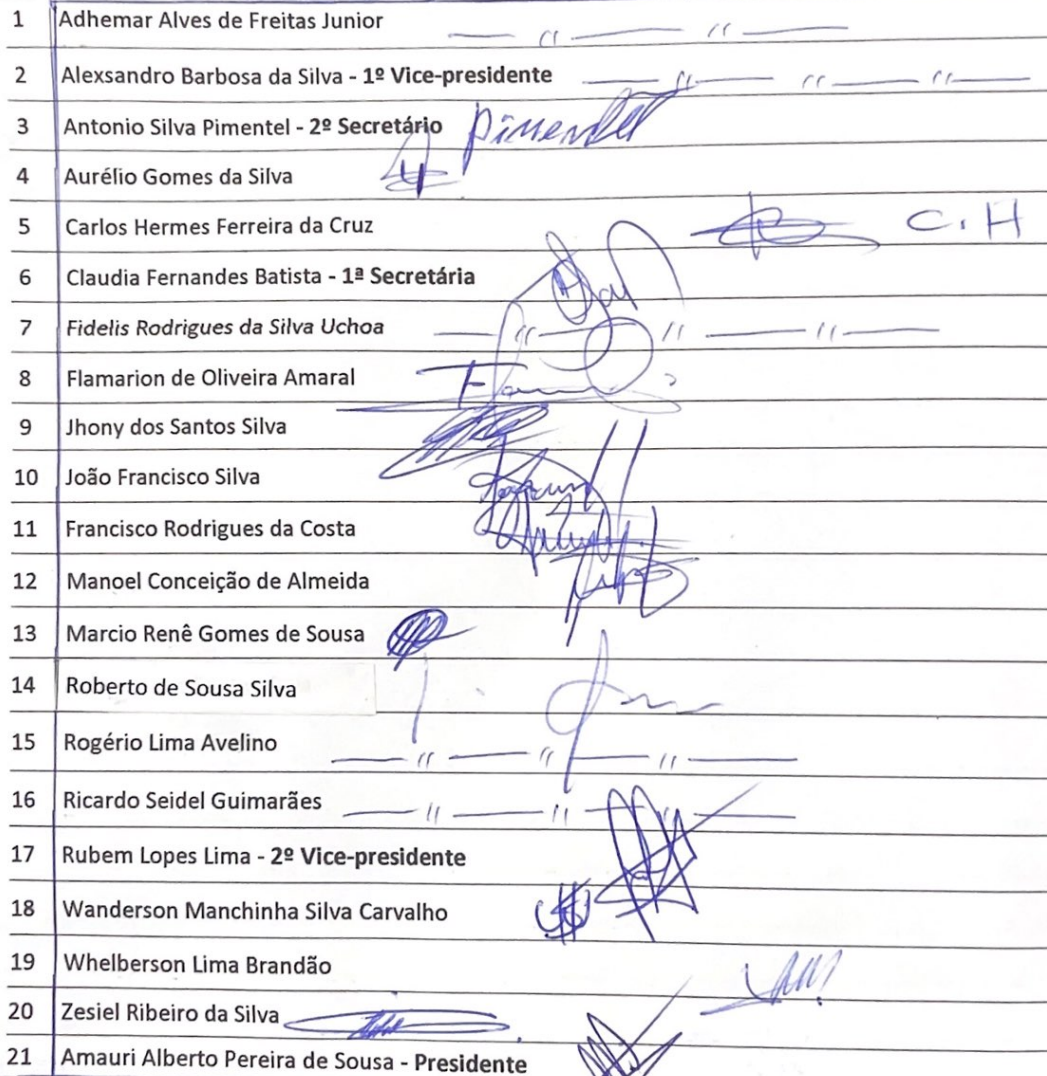 1 Adhemar Alves de Freitas Junior — " — " —
2 Alexsandro Barbosa da Silva - 1º Vice-presidente — " — " — " —
3 Antonio Silva Pimentel - 2º Secretário Pimentel
4 Aurélio Gomes da Silva
5 Carlos Hermes Ferreira da Cruz C. H
6 Claudia Fernandes Batista - 1ª Secretária
7 Fidelis Rodrigues da Silva Uchoa — " — " — " —
8 Flamarion de Oliveira Amaral
9 Jhony dos Santos Silva
10 João Francisco Silva
11 Francisco Rodrigues da Costa
12 Manoel Conceição de Almeida
13 Marcio Renê Gomes de Sousa
14 Roberto de Sousa Silva
15 Rogério Lima Avelino — " — " — " —
16 Ricardo Seidel Guimarães — " — " — " —
17 Rubem Lopes Lima - 2º Vice-presidente
18 Wanderson Manchinha Silva Carvalho
19 Whelberson Lima Brandão
20 Zesiel Ribeiro da Silva
21 Amauri Alberto Pereira de Sousa - Presidente